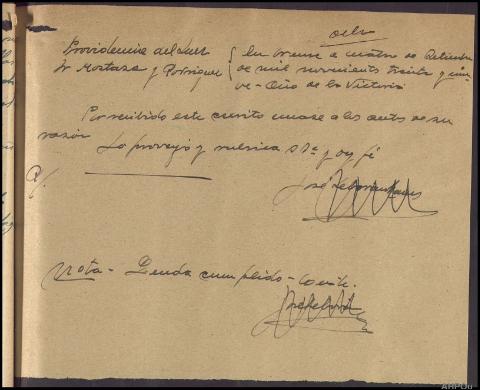 Providencia del Juez
Sr Mostaza y Rodriguez
En Orense a cuatro de Setiembre
de mil novecientos treinta y nue-
ve-Año de la Victoria
Por recibido este escrito unase a los autos de su
razón
Lo proveyó y rubrica S Sª y doy fé
José
Nota- Queda cumplido-
AHPOu